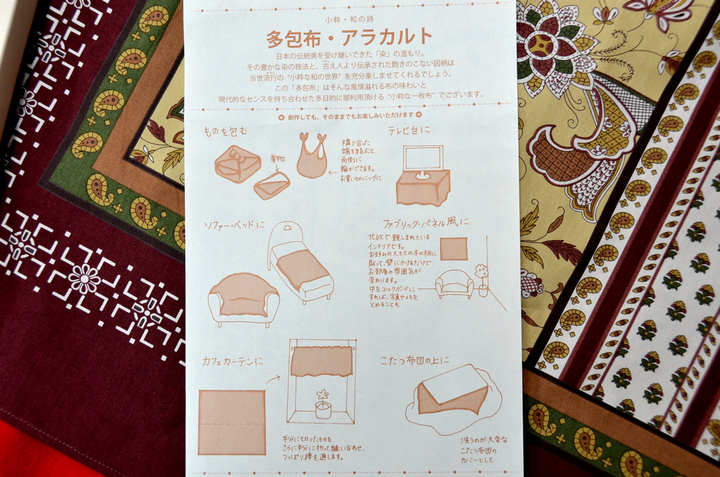 小粋・和の詩
多包布・アラカルト
日本の伝統美を受け継いできた「染」の温もり。
その豊かな染の技法と、古え人より伝承された飽きのこない図柄は
当世流行の“小粋な和の世界”を充分楽しませてくれるでしょう。
この「多包布」はそんな風情溢れる布の味わいと
現代的なセンスを持ち合わせた多目的に御利用頂ける“小粋な一枚布”でございます。
創作しても、そのままでもお楽しみいただけます
ものを包む
書物
隣り合った
端を結ぶと
両側に
輪ができます。
お買いものバッグに
テレビ台に
ソファー・ベッドに
ファブリック・パネル風に
北欧で親しまれている
インテリアです。
お好みの大きさの木の板に
貼って、壁にかけるだけで
お部屋の雰囲気が
変わります。
中をコルクボードに
すれば、写真やメモを
とめることも
カフェカーテンに
半分に切ったものを
さらに半分に折って縫い合わせ、
つっぱり棒を通します。
こたつ布団の上に
洗うのが大変な
こたつ布団の
カバーとして